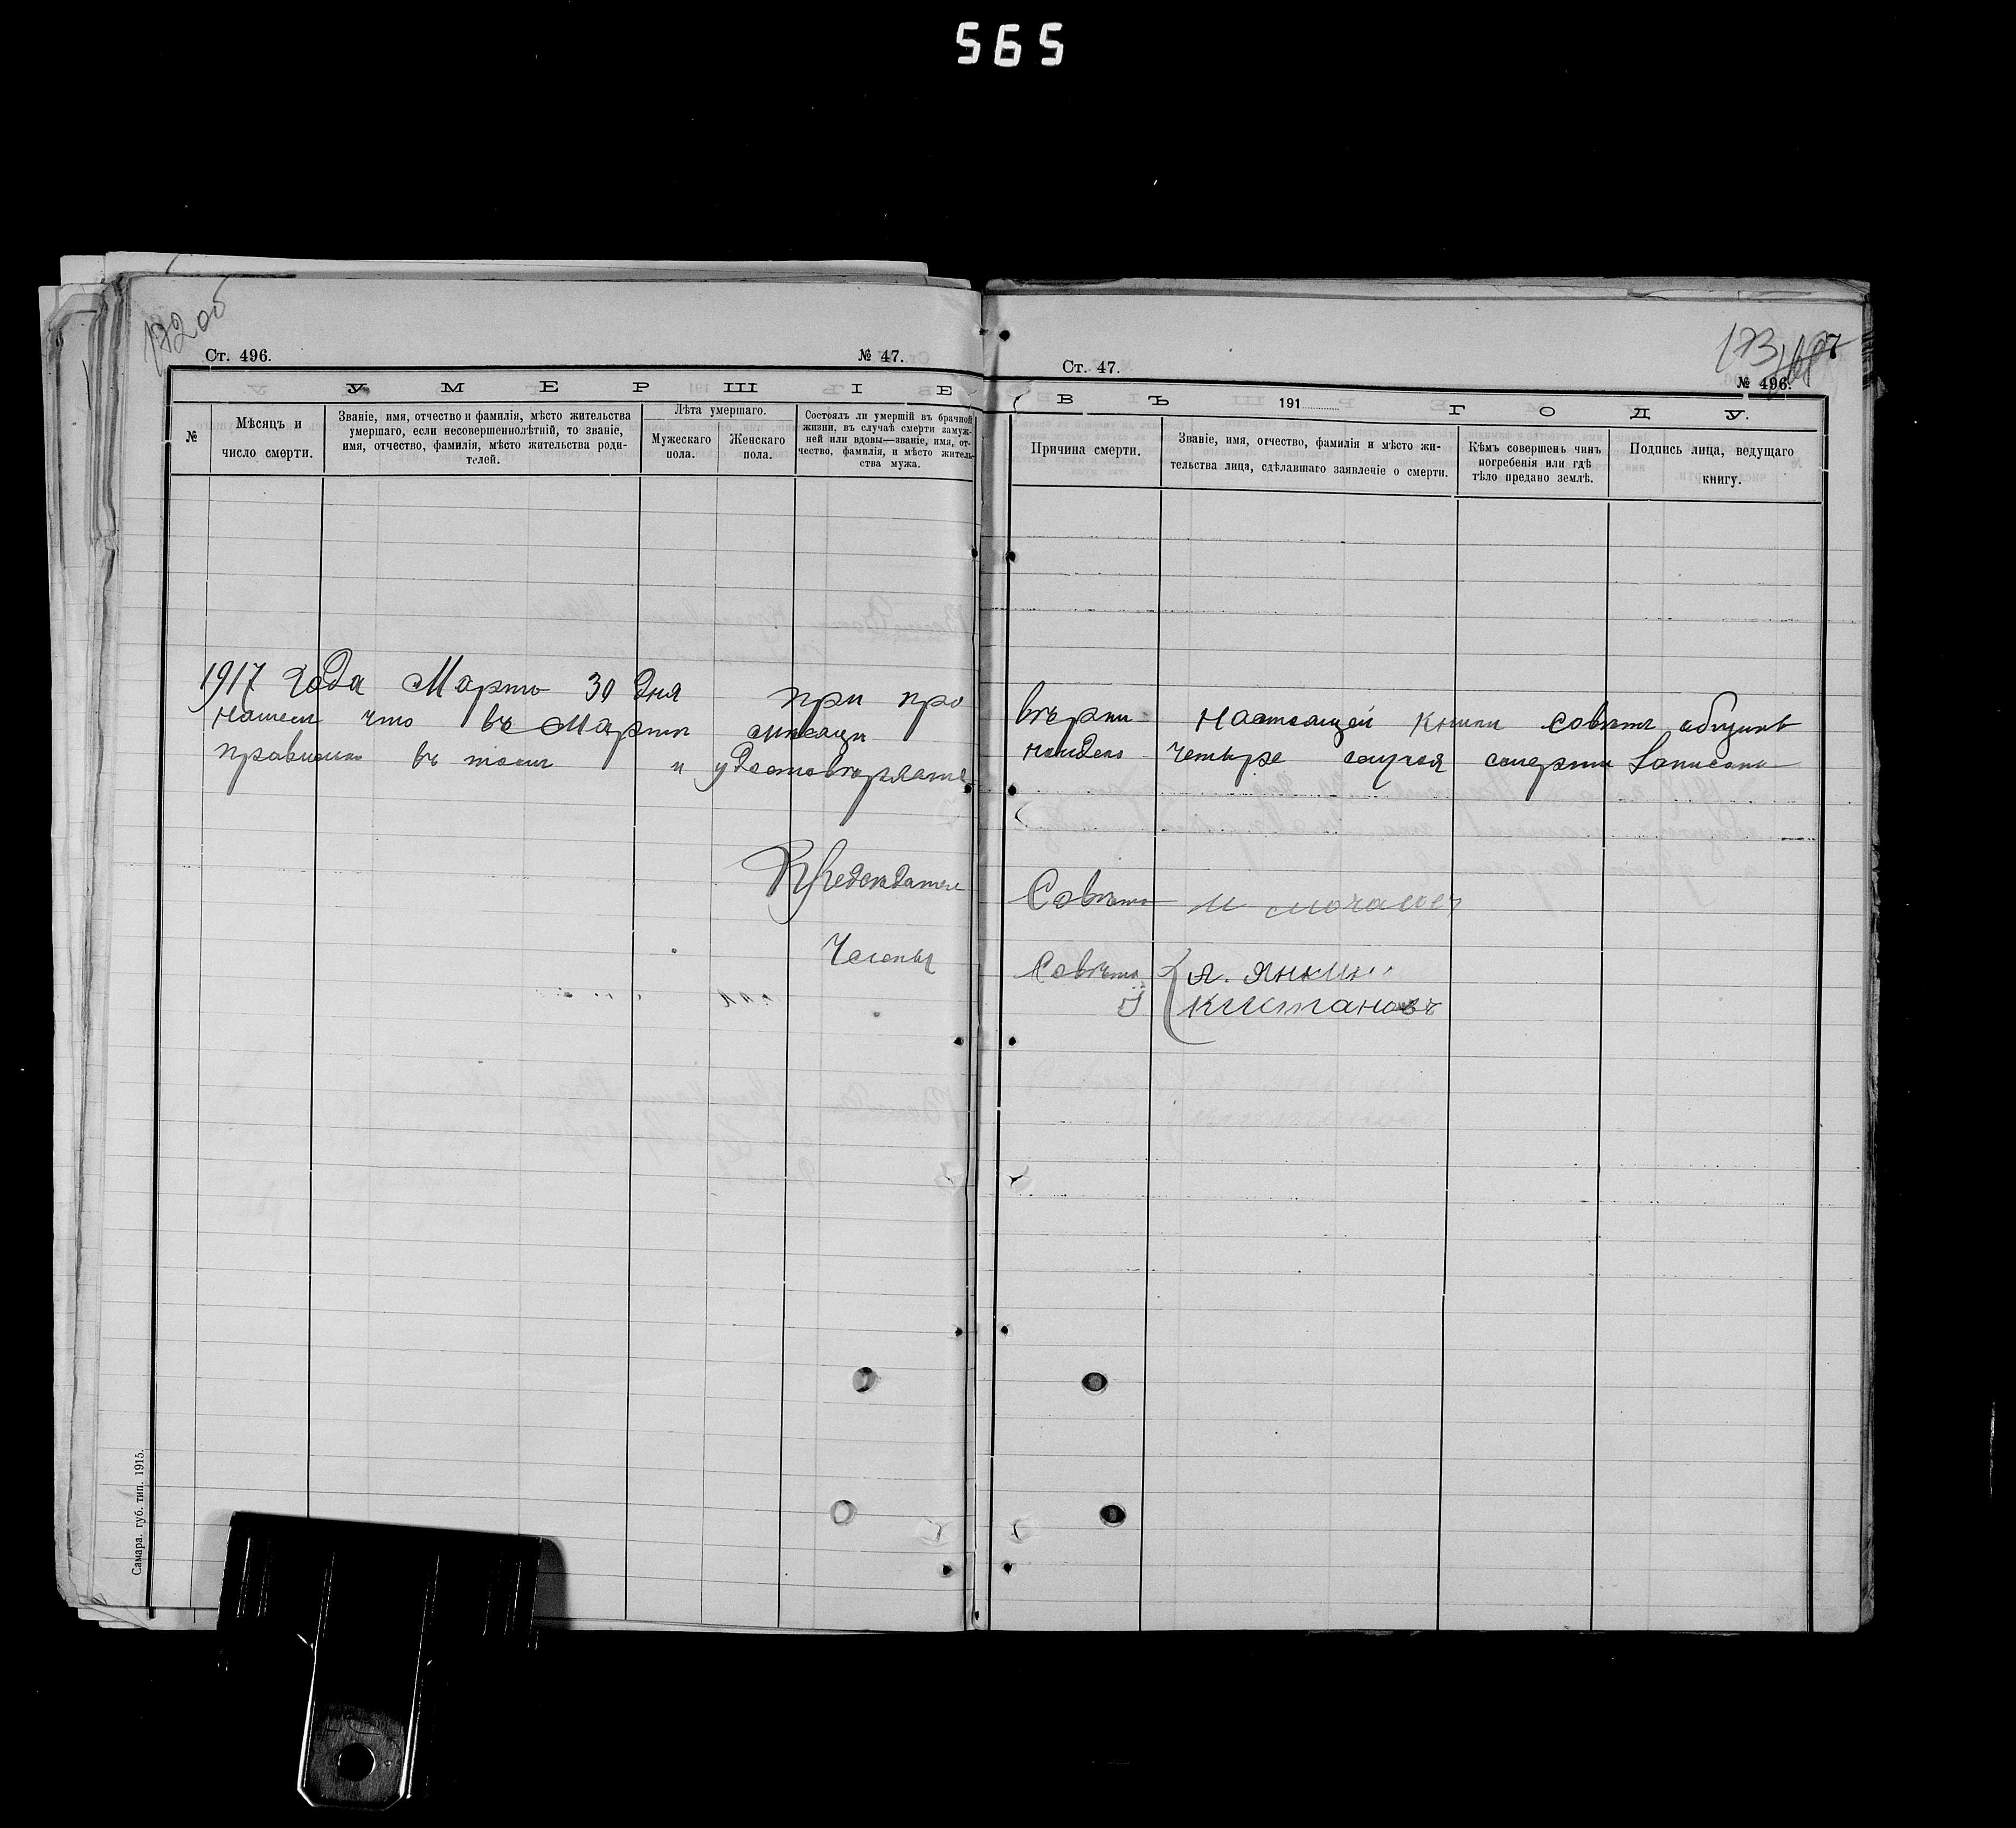 565
172 об
Ст. 496.
№ 47.
УМЕРШІЕ
№
Мѣсяцъ и
число смерти.
Званіе, имя, отчество и фамилія, мѣсто жительства
умершаго, если несовершеннолѣтній, то званіе,
имя, отчество, фамилія, мѣсто жительства роди-
телей.
Лѣта умершаго.
Мужескаго
пола.
Женскаго
пола.
Состоялъ ли умершій въ брачной
жизни, въ случаѣ смерти замуж-
ней или вдовы—званіе, имя, от-
чество, фамилія, и мѣсто житель-
ства мужа.
1917 года Марта 30 дня при про
нашел что въ Мартѣ мѣсяцѣ
правильно въ томъ и удостовѣряетъ
Председатель
Члены
Самара. губ. тип. 1915.
173
Ст. 47.
№ 496.
ВЪ 191 ГОДУ.
Причина смерти.
Званіе, имя, отчество, фамилія и мѣсто жи-
тельства лица, сдѣлавшаго заявленіе о смерти.
Кѣмъ совершенъ чинъ
погребенія или гдѣ
тѣло предано землѣ.
Подпись лица, ведущаго
книгу.
вѣрки настоящей книги совѣтъ общины
четыре случая смерти Записано
Совѣта
Совѣта Я. Янкин
Кистановъ